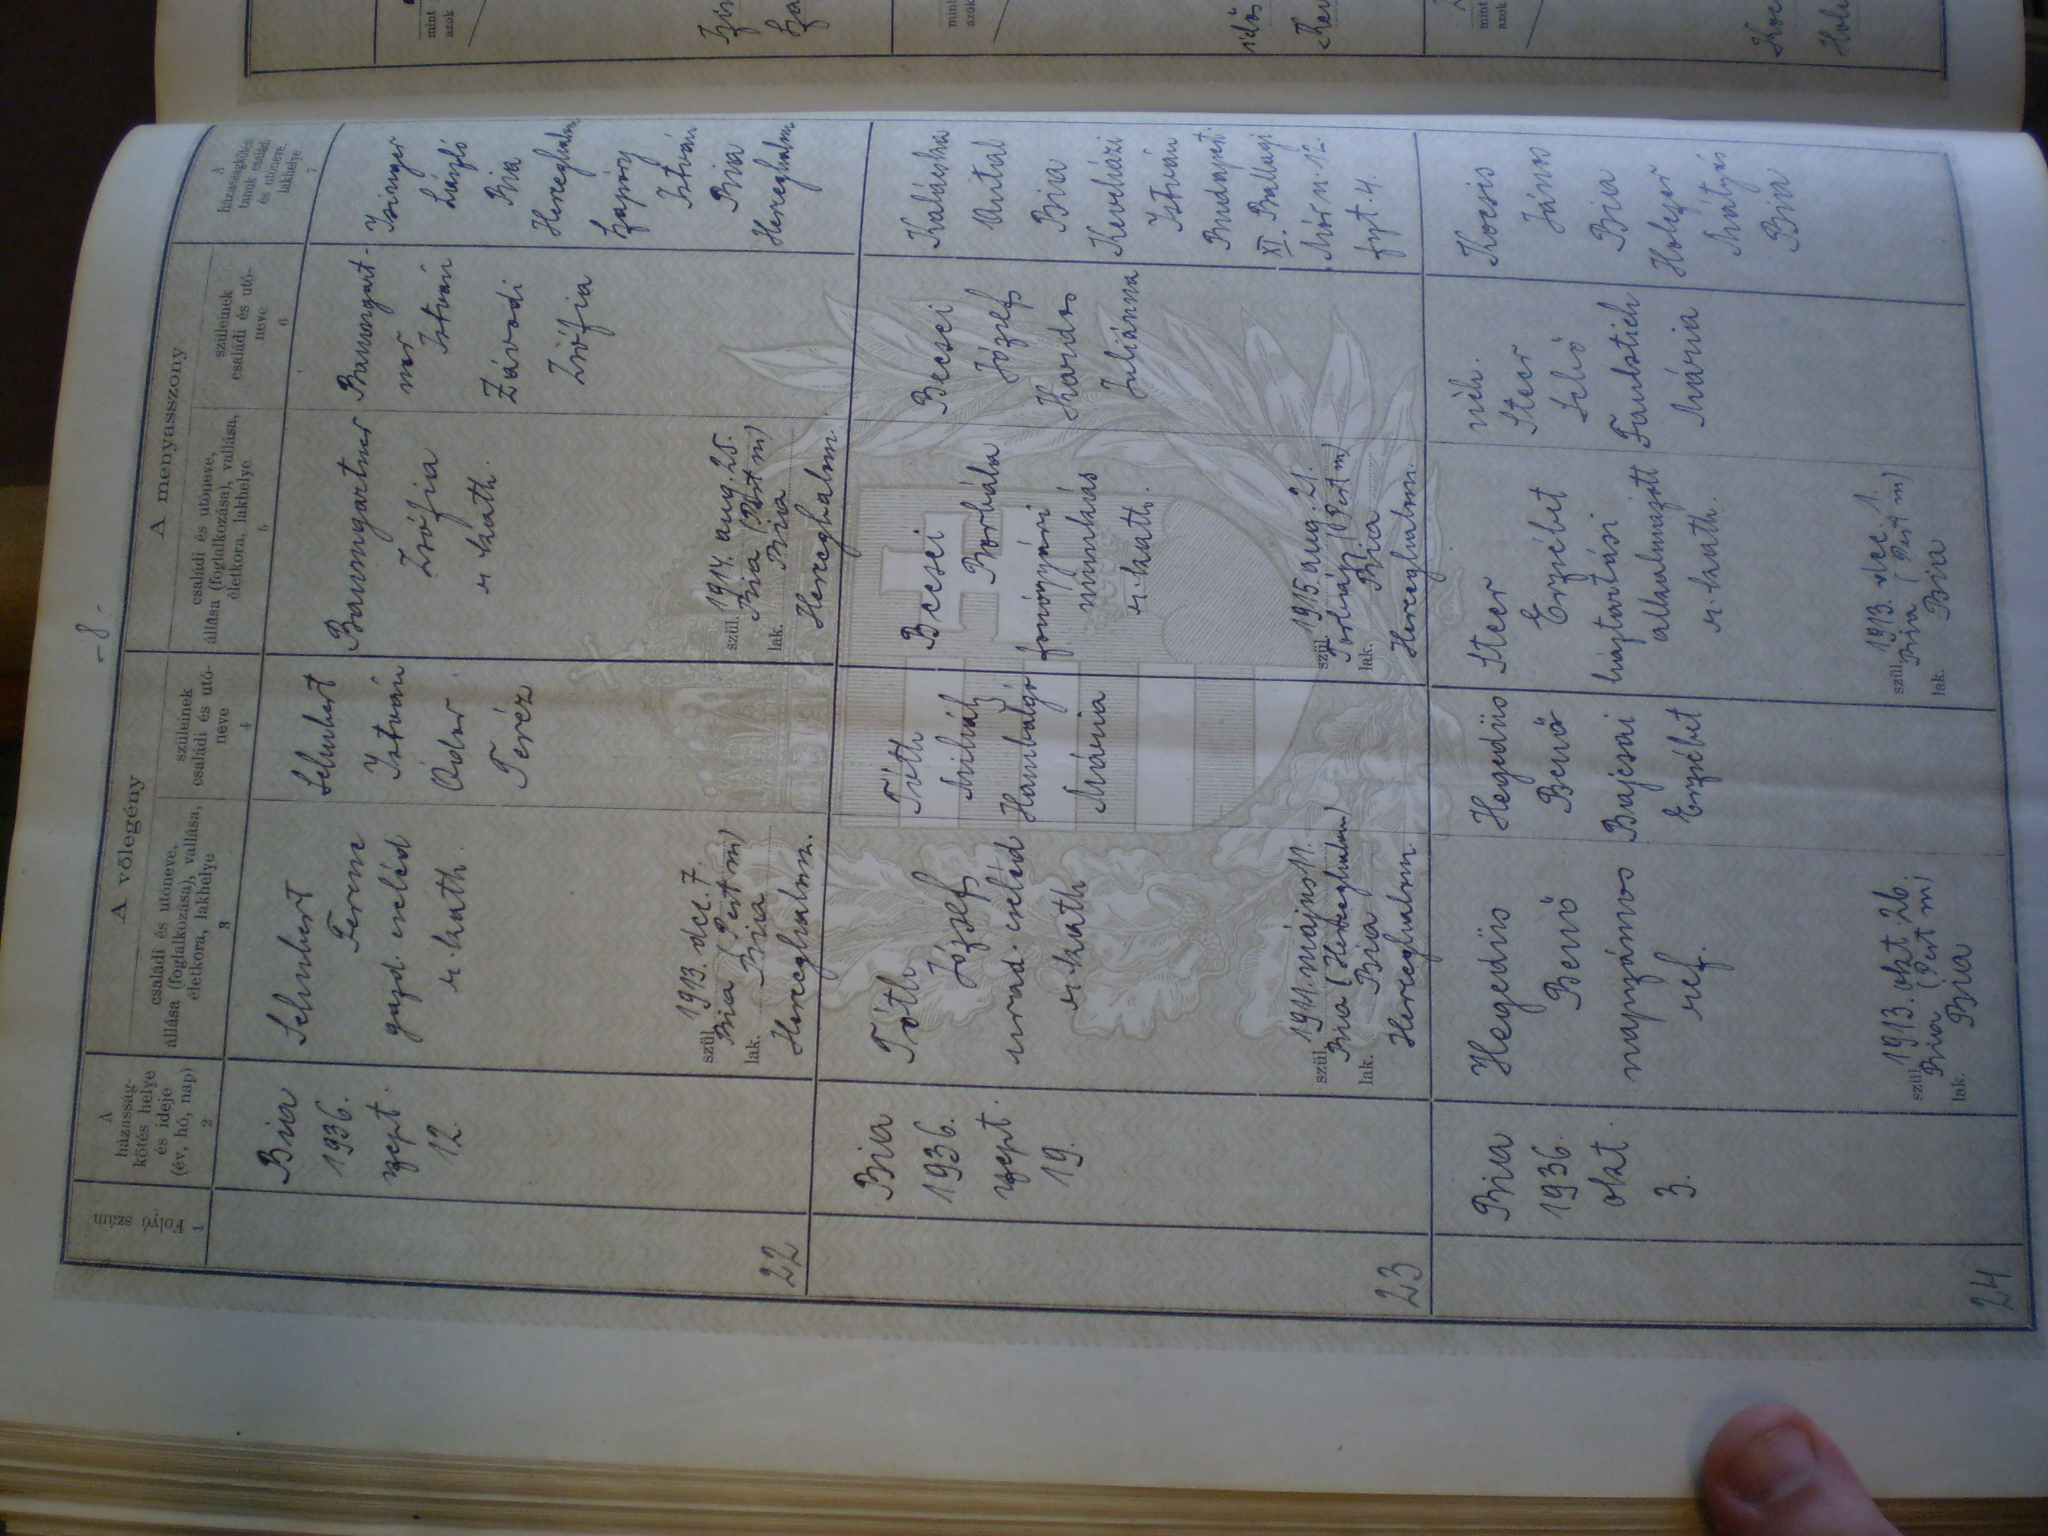 - 8 -
1
Folyó
szám
2
A
házasság-
kötés helye
és ideje
(év, hó, nap)
A vőlegény
családi és utóneve,
állása (foglalkozása), vallása,
életkora, lakhelye
3
szüleinek
családi és utó-
neve
4
A menyasszony
családi és utóneve,
állása (foglalkozása), vallása,
életkora, lakhelye
5
szüleinek
családi és utó-
neve
6
A
házasságkötés
tanuk családi
és utóneve,
lakhelye
7
22
Bia
1936.
szept.
12.
Schubert
Ferenc
gazd. cseléd
r. kath.
szül. 1913. dec. 7.
Bia (Pest m)
lak. Bia
Herceghalom.
Schubert
István
Ódor
Teréz
Baumgartner
Zsófia
r. kath.
szül. 1914. aug. 25.
Bia (Pest m)
lak. Bia
Herceghalom.
Baumgart-
ner
István
Závodi
Zsófia
László
Bia
Herceghalom
István
Bia
Herceghalom
23
Bia
1936.
szept.
19.
Tóth
József
urad. cseléd
r. kath
szül. 1911. május 11.
Bia (Herceghalom)
lak. Bia
Herceghalom.
Tóth
Mihály
Mária
Becsei
Borbála
munkás
r. kath.
szül. 1915. aug. 21.
(Pest m)
lak. Bia
Herceghalom.
Becsei
József
Kardos
Julianna
Kaláska
Antal
Bia
Keveházi
István
Budapest.
XI. Ballagi
Mór u. 12.
fszt. 4.
24
Bia
1936.
okt.
3.
Hegedüs
Benő
napszámos
ref.
szül. 1913. okt. 26.
Bia (Pest m)
lak. Bia
Hegedüs
Benő
Bajcsai
Erzsébet
Steer
Erzsébet
háztartási
alkalmazott
r. kath.
szül. 1913. dec. 1.
Bia (Pest m)
lak. Bia
néh.
Steer
Faustich
Mária
Kocsis
János
Bia
Holczer
Mátyás
Bia
mint
azok
mint
azok
mint
azok